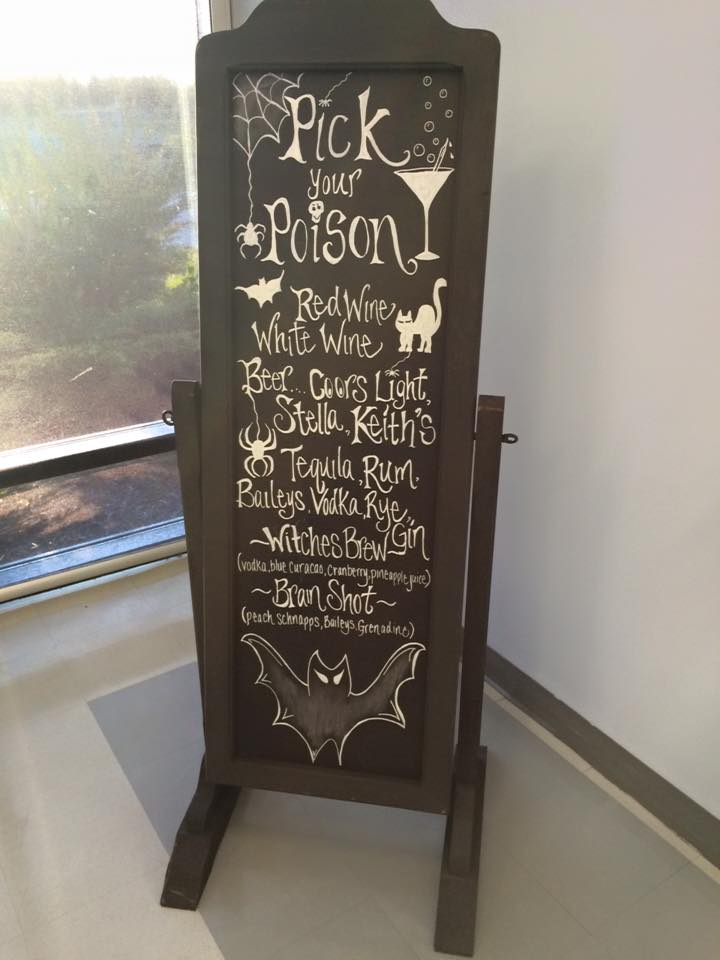 Pick
your
Poison
Red Wine
White Wine
Beer... Coors Light,
Stella, Keith's
Tequila, Rum,
Baileys, Vodka, Rye,
Gin
~Witches Brew~
(vodka, blue curacao, cranberry, pineapple juice)
~Brain Shot~
(peach schnapps, Baileys, Grenadine)